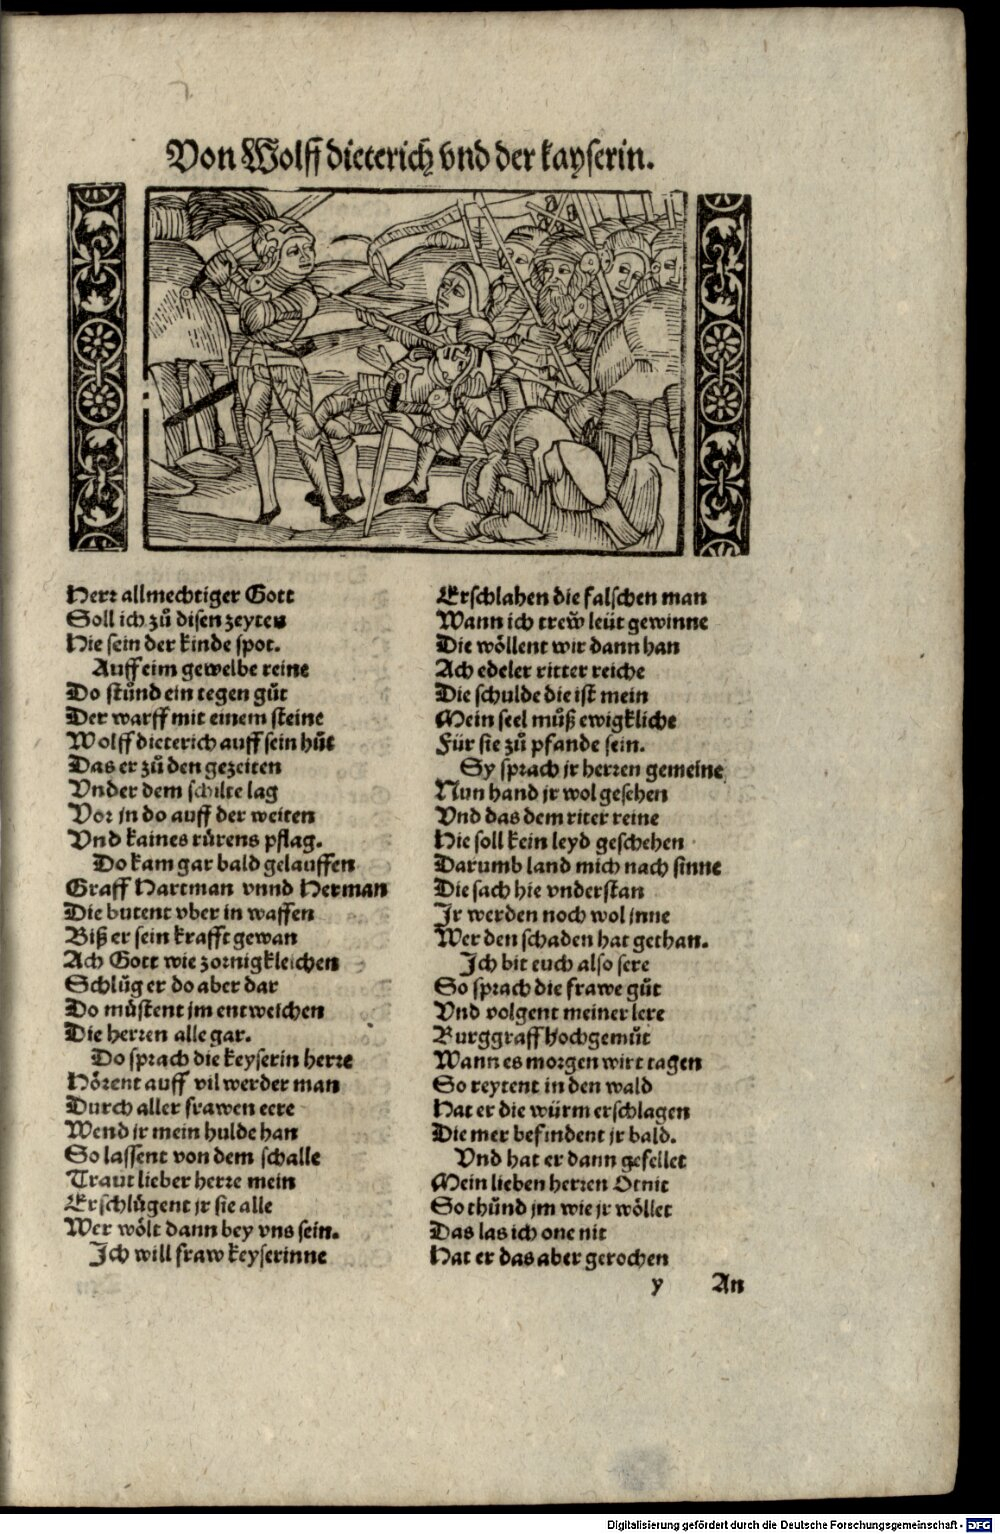 Von Wolff dieterich vnd der kayserin.
Herr allmechtiger Gott
Soll ich zů disen zeyten
Hie sein der kinde spot.
Auff eim gewelbe reine
Do stůnd ein tegen gůt
Der warff mit einem steine
Wolff dieterich auff sein hůt
Das er zů den gezeiten
Vnder dem schilte lag
Vor jn do auff der weiten
Vnd kaines růrens pflag.
Do kam gar bald gelauffen
Graff Hartman vnnd Herman
Die butent vber in waffen
Biß er sein krafft gewan
Ach Gott wie zornigkleichen
Schlůg er do aber dar
Do můstent jm entweichen
Die herren alle gar.
Do sprach die keyserin herre
Hörent auff vil werder man
Durch aller frawen eere
Wend jr mein hulde han
So lassent von dem schalle
Traut lieber herre mein
Erschlůgent jr sie alle
Wer wölt dann bey vns sein.
Ich will fraw keyserinne
Erschlahen die falschen man
Wann ich trew̃ leüt gewinne
Die wöllent wir dann han
Ach edeler ritter reiche
Die schulde die ist mein
Mein seel můß ewigkliche
Für sie zů pfande sein.
Sy sprach jr herren gemeine
Nun hand jr wol gesehen
Vnd das dem riter reine
Hie soll kein leyd geschehen
Darumb land mich nach sinne
Die sach hie vnderstan
Jr werden noch wol jnne
Wer den schaden hat gethan.
Ich bit euch also sere
So sprach die frawe gůt
Vnd volgent meiner lere
Burggraff hochgemůt
Wann es morgen wirt tagen
So reytent in den wald
Hat er die würm erschlagen
Die mer befindent jr bald.
Vnd hat er dann gefellet
Mein lieben herren Otnit
So thůnd jm wie jr wöllet
Das las ich one nit
Hat er das aber gerochen
y An
Digitalisierung gefördert durch die Deutsche Forschungsgemeinschaft - DFG